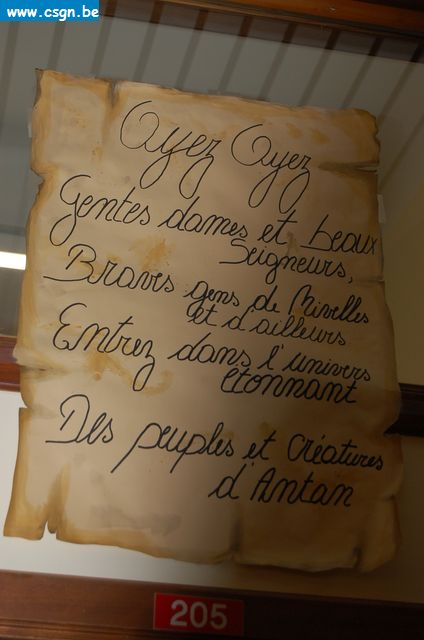 www.csgn.be
Oyez Oyez
Gentes dames et beaux
Seigneurs,
Braves gens de Nivelles
et d'ailleurs
Entrez dans l'univers
étonnant
Des peuples et Créatures
d'Antan
205